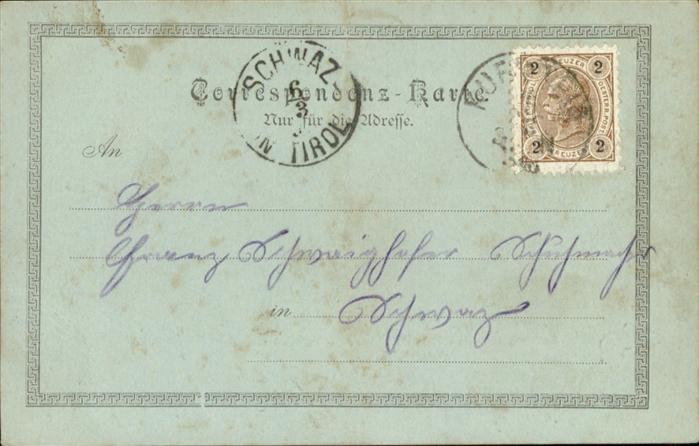 Correspondenz-Karte
Nur für die Adresse.
SCHWAZ
6
3
IN TIROL
KUF
2 KREUZER 2
OESTERR. POST
2 KREUZER 2
An
Herrn
Franz Schwaighofer Schuhmachr
in Schwaz